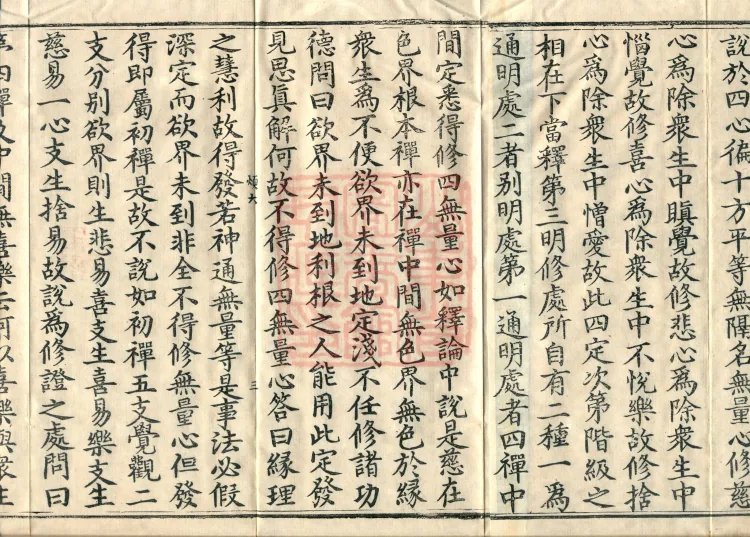 說於四心徧十方平等無隔名無量心修慈
心爲除衆生中瞋覺故修悲心爲除衆生中
惱覺故修喜心爲除衆生中不悅樂故修捨
心爲除衆生中憎愛故此四定次第階級之
相在下當釋第三明修處所自有二種一爲
通明處二者别明處第一通明處者四禪中
間定悉得修四無量心如釋論中說是慈在
色界根本禪亦在禪中間無色界無色於緣
衆生爲不便欲界未到地定淺不任修諸功
德問曰欲界未到地利根之人能用此定發
見思眞解何故不得修四無量心答曰緣理
煩大
三
之慧利故得發若神通無量等是事法必假
深定而欲界未到非全不得修無量心但發
得即屬初禪是故不說如初禪五支覺觀二
支分别欲界則生悲易喜支生喜易樂支生
慈易一心支生捨易故說爲修證之處問曰
第四禪及中間無喜樂云何以喜樂與衆生